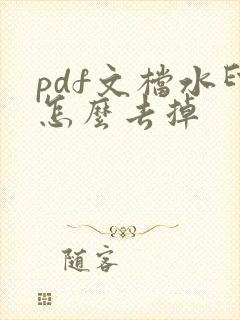 pdf文檔水印
怎麼去掉
随客